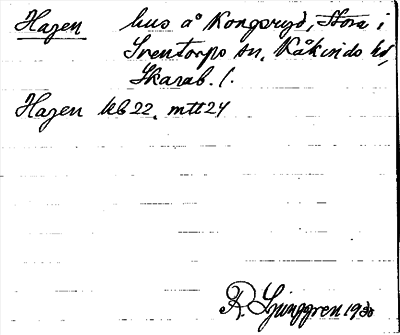 Hagen hus å Kongsryd, Stora i
Sventorps sn, Kåkinds hd,
Skarab. l.
Hagen kb 22. mtl 24
R. Ljunggren 1930